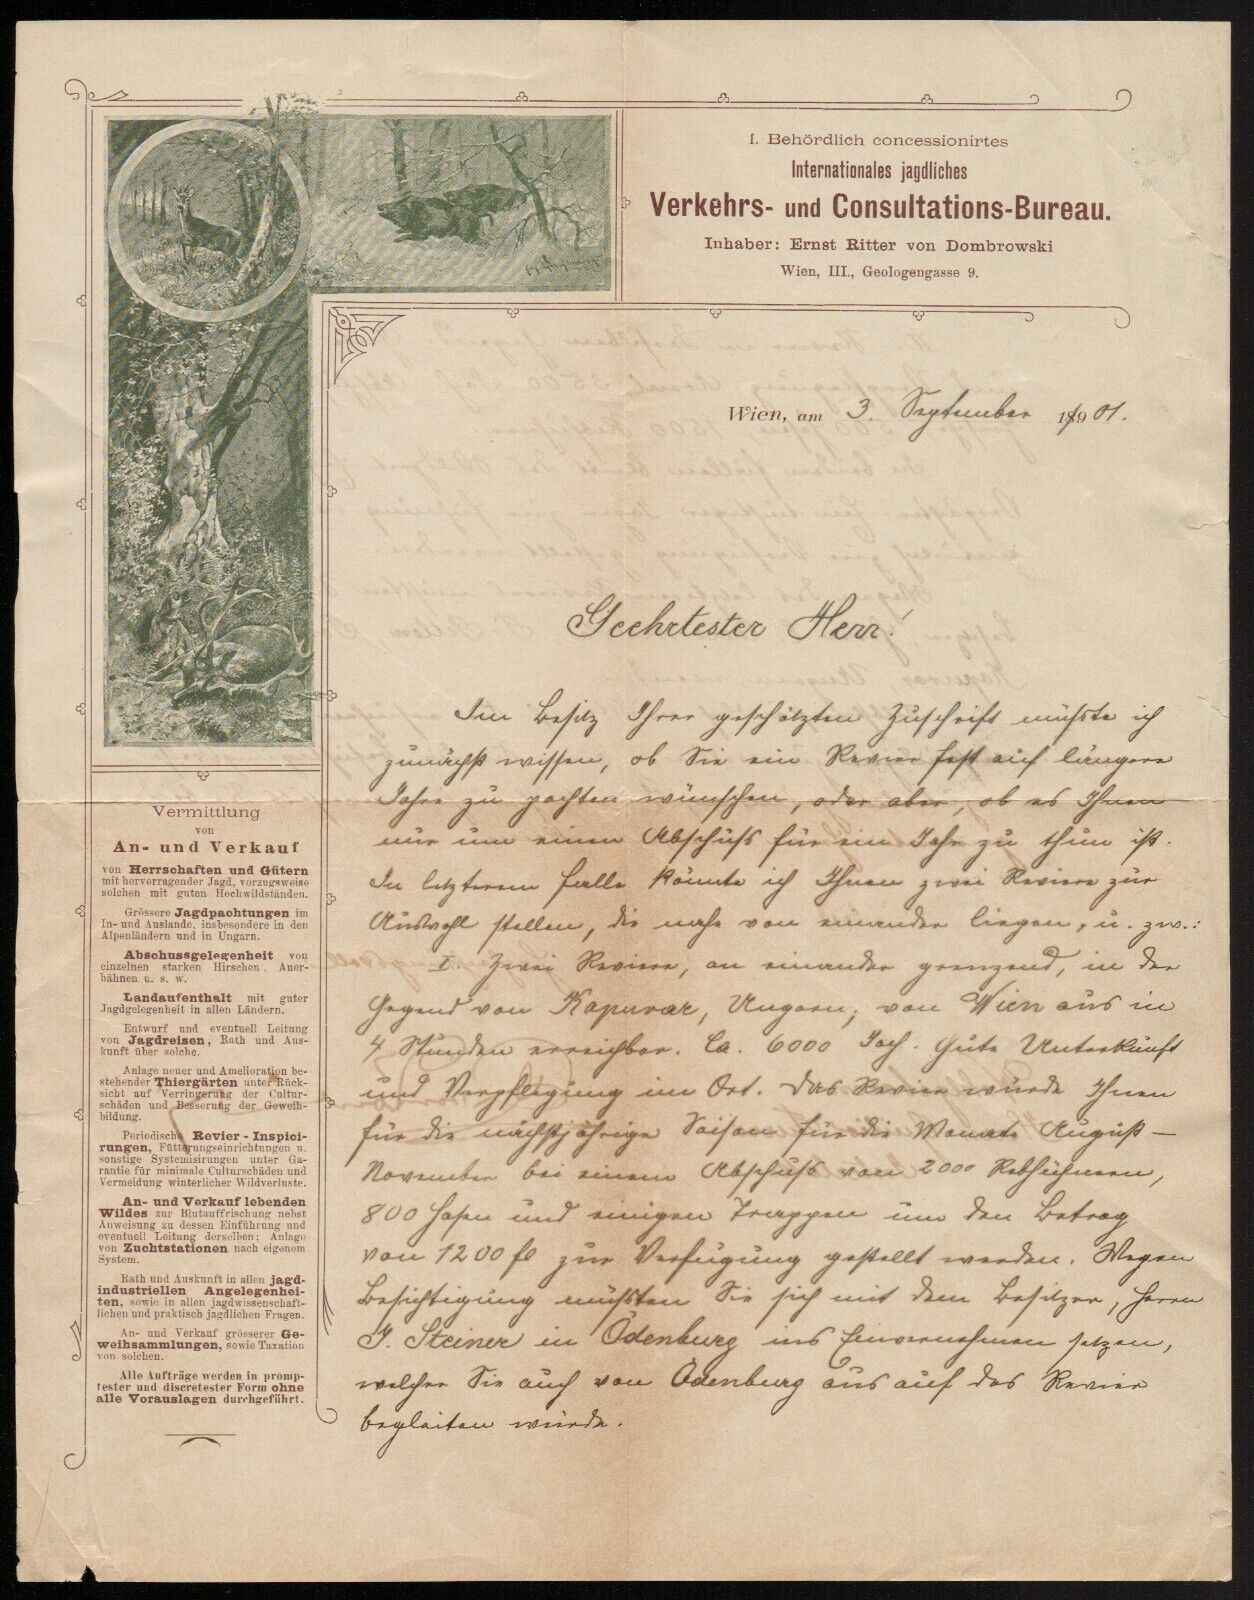 I. Behördlich concessionirtes
Internationales jagdliches
Verkehrs- und Consultations-Bureau.
Inhaber: Ernst Ritter von Dombrowski
Wien, III., Geologengasse 9.
Wien, am 3. September 1901.
Geehrtester Herr!
Im Besitz Ihrer geschätzten Zuschrift müsste ich
zunächst wissen, ob Sie ein Revier fest auf längere
Jahre zu pachten wünschen, oder aber, ob es Ihnen
nur um einen Abschuss für ein Jahr zu thun ist.
In letzterem Falle könnte ich Ihnen zwei Reviere zur
Auswahl stellen, die nahe von einander liegen, u. zw.:
I. Zwei Reviere, an einander grenzend, in der
Gegend von Kapuvar, Ungarn, von Wien aus in
4 Stunden erreichbar. Ca. 6000 Joch. Gute Unterkunft
und Verpflegung im Ort. Das Revier würde Ihnen
für die nächstjährige Saison für die Monate August –
November bei einem Abschuss von 2000 Rebhühnern,
800 Hasen und einigen Trappen um den Betrag
von 1200 fl zur Verfügung gestellt werden. Wegen
Besichtigung müssten Sie sich mit dem Besitzer, Herrn
J. Steiner in Ödenburg ins Einvernehmen setzen,
welcher Sie auch von Ödenburg aus auf das Revier
begleiten würde.
Vermittlung
von
An- und Verkauf
von Herrschaften und Gütern
mit hervorragender Jagd, vorzugsweise
solchen mit guten Hochwildständen.
Grössere Jagdpachtungen im
In- und Auslande, insbesondere in den
Alpenländern und in Ungarn.
Abschussgelegenheit von
einzelnen starken Hirschen, Auer-
hähnen u. s. w.
Landaufenthalt mit guter
Jagdgelegenheit in allen Ländern.
Entwurf und eventuell Leitung
von Jagdreisen, Rath und Aus-
kunft über solche.
Anlage neuer und Amelioration be-
stehender Thiergärten unter Rück-
sicht auf Verringerung der Cultur-
schäden und Besserung der Geweih-
bildung.
Periodische Revier-Inspici-
rungen, Fütterungseinrichtungen u.
sonstige Systemisirungen unter Ga-
rantie für minimale Culturschäden und
Vermeidung winterlicher Wildverluste.
An- und Verkauf lebenden
Wildes zur Blutauffrischung nebst
Anweisung zu dessen Einführung und
eventuell Leitung derselben; Anlage
von Zuchtstationen nach eigenem
System.
Rath und Auskunft in allen jagd-
industriellen Angelegenhei-
ten, sowie in allen jagdwissenschaft-
lichen und praktisch jagdlichen Fragen.
An- und Verkauf grösserer Ge-
weihsammlungen, sowie Taxation
von solchen.
Alle Aufträge werden in promp-
tester und discretester Form ohne
alle Vorauslagen durchgeführt.